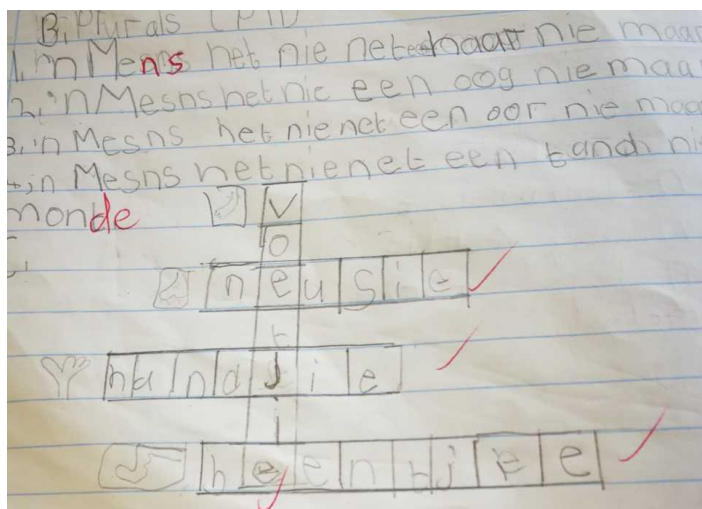 B. Plurals (Pl)
1. 'n Mens het nie net nie maar
2. 'n Mesns het nie een oog nie maar
3. 'n Mesns het nie net een oor nie maa
4. 'n Mesns het nie net een tand ni
monde
v
o
neusie
t
handjie
i
beentjee